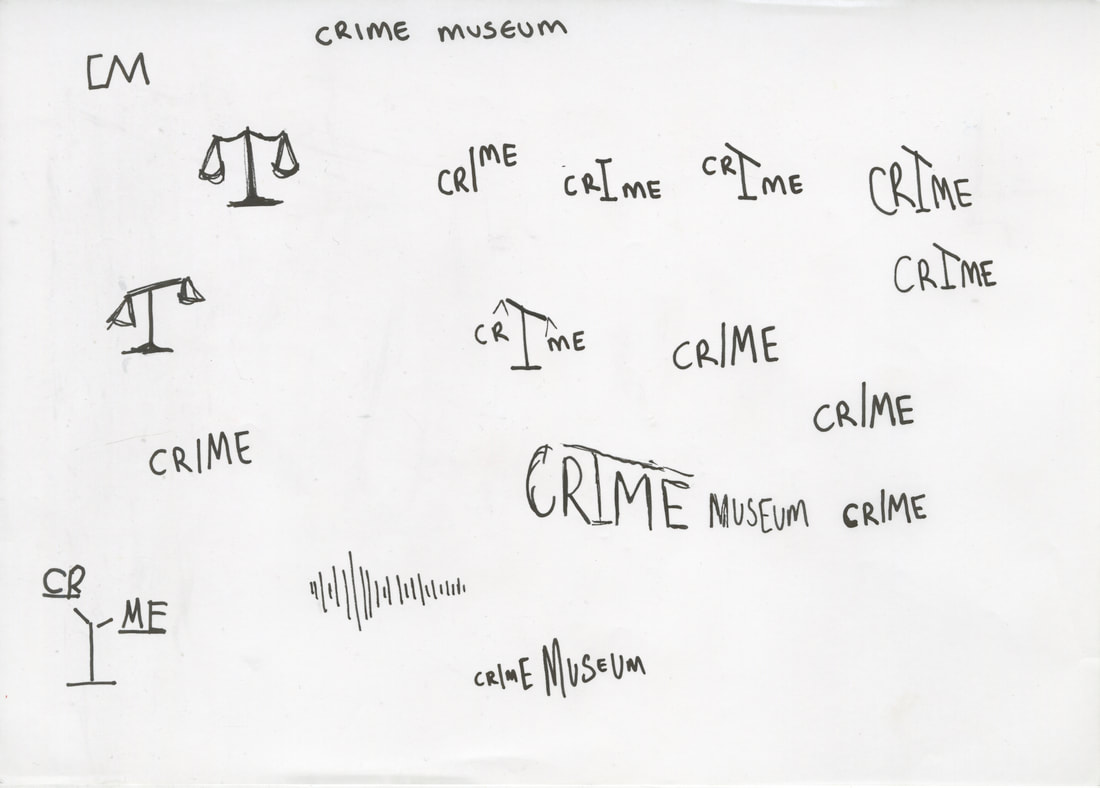 CRIME MUSEUM
CM
CRIME CRIME CRIME CRIME
CRIME
CRIME CRIME
CRIME
CRIME
CRIME MUSEUM CRIME
CR ME
CRIME MUSEUM